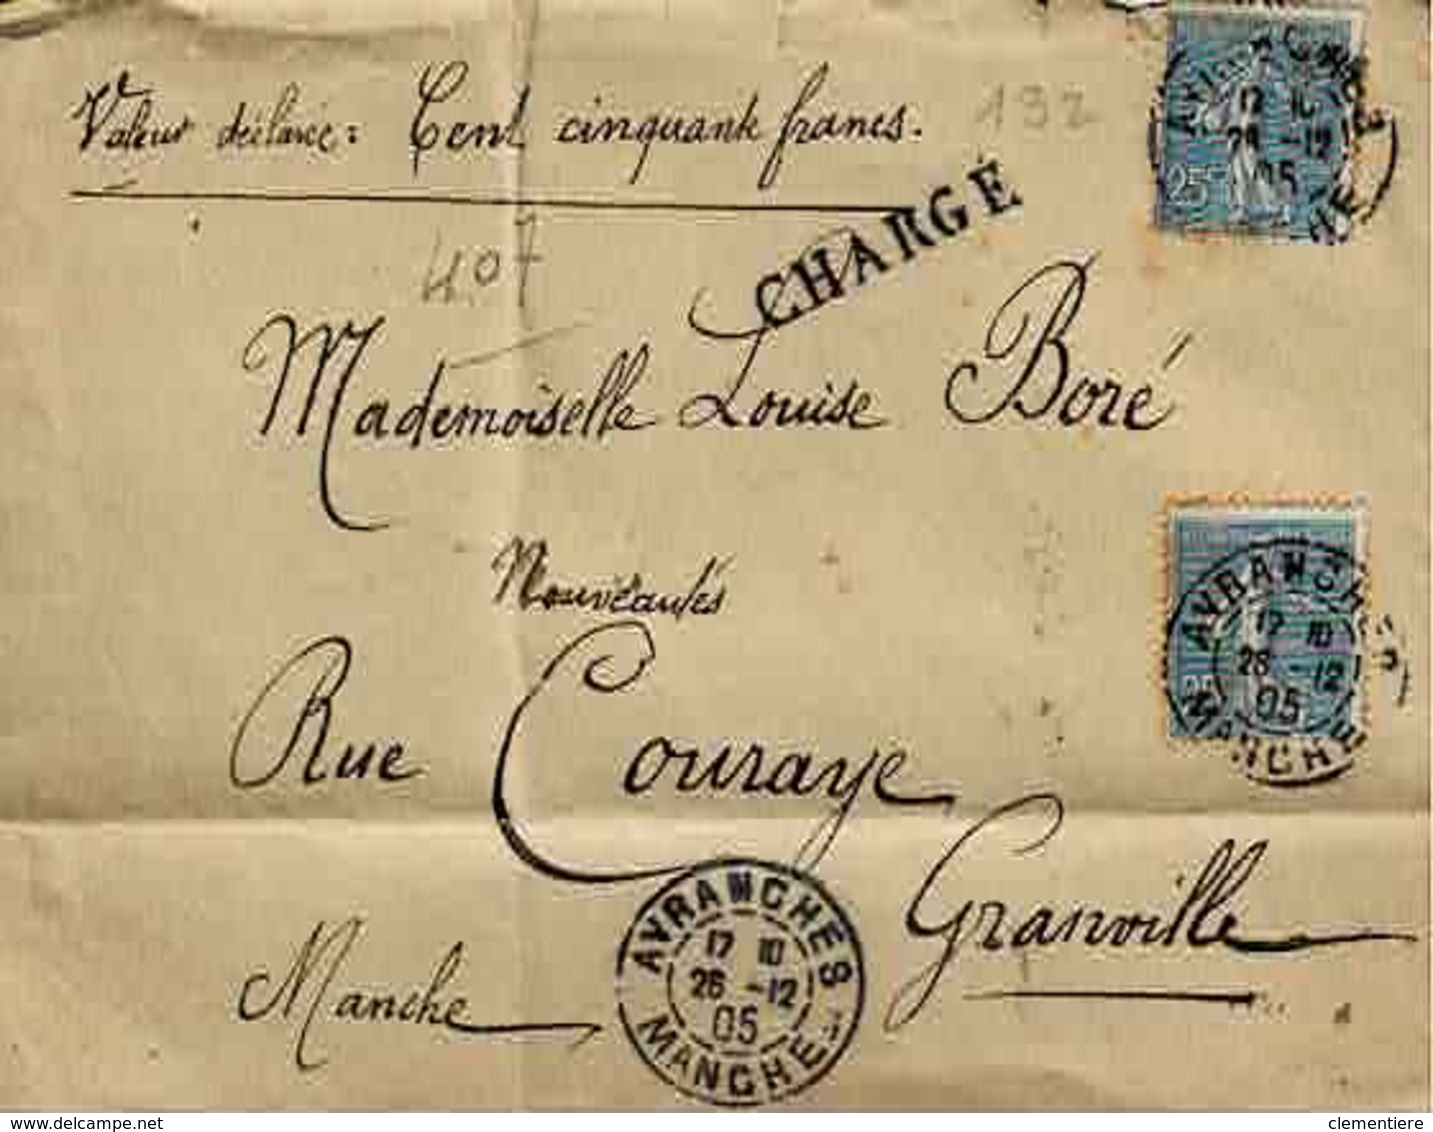 Valeur déclarée: Cent cinquante francs.
192
AVRANCHES
17 10
26 -12
05
MANCHE
25c
407
CHARGÉ
Mademoiselle Louise Boré
Nouveautés
AVRANCHES
17 10
26 -12
05
MANCHE
25
Rue Couraye
Granville
Manche
AVRANCHES
17 10
26 -12
05
MANCHE
www.delcampe.net
clementiere